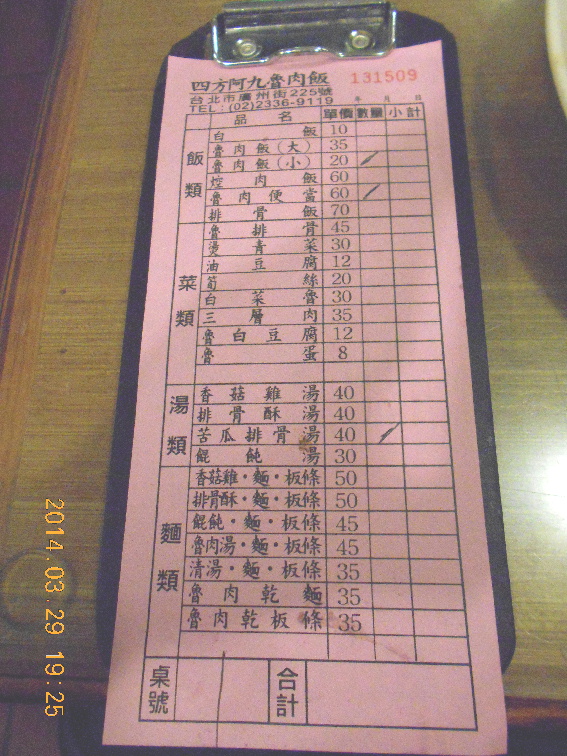 四方阿九魯肉飯 131509
台北市廣州街225號
TEL:(02)2336-9119 年 月 日
品名 單價 數量 小計
飯類
白飯 10
魯肉飯(大) 35
魯肉飯(小) 20
焢肉飯 60
魯肉便當 60
排骨飯 70
菜類
魯排骨 45
燙青菜 30
油豆腐 12
筍絲 20
白菜魯 30
三層肉 35
魯白豆腐 12
魯蛋 8
湯類
香菇雞湯 40
排骨酥湯 40
苦瓜排骨湯 40
餛飩湯 30
麵類
香菇雞·麵·板條 50
排骨酥·麵·板條 50
餛飩·麵·板條 45
魯肉湯·麵·板條 45
清湯·麵·板條 35
魯肉乾麵 35
魯肉乾板條 35
桌號 合計
2014.03.29 19:25